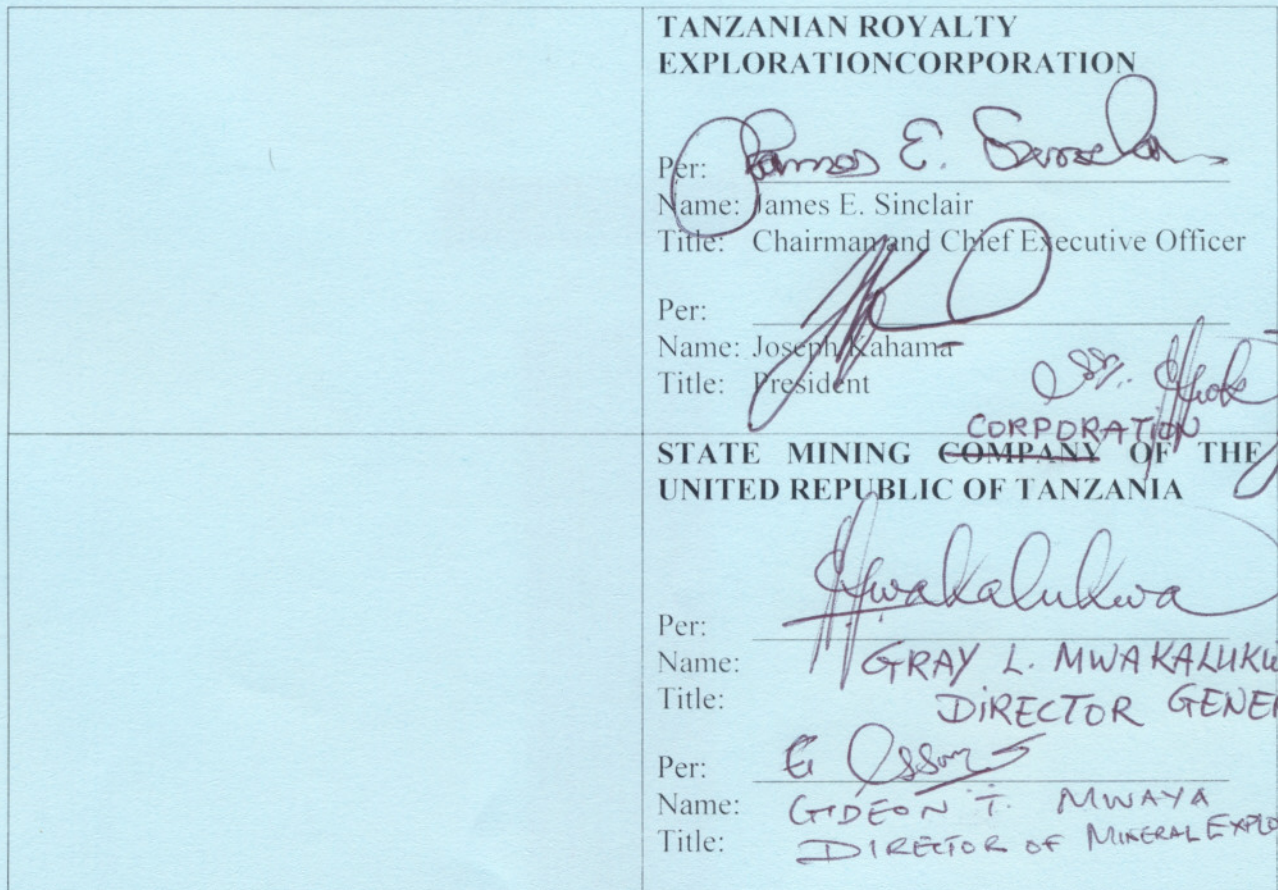 TANZANIAN ROYALTY
EXPLORATIONCORPORATION
Per: James E. Sinclair
Name: James E. Sinclair
Title: Chairman and Chief Executive Officer
Per:
Name: Joseph Kahama
Title: President
CORPORATION
STATE MINING COMPANY OF THE
UNITED REPUBLIC OF TANZANIA
Per: Mwakalukwa
Name: GRAY L. MWAKALUKW
Title: DIRECTOR GENER
Per:
Name: GIDEON T. MWAYA
Title: DIRECTOR OF MINERAL EXPLO